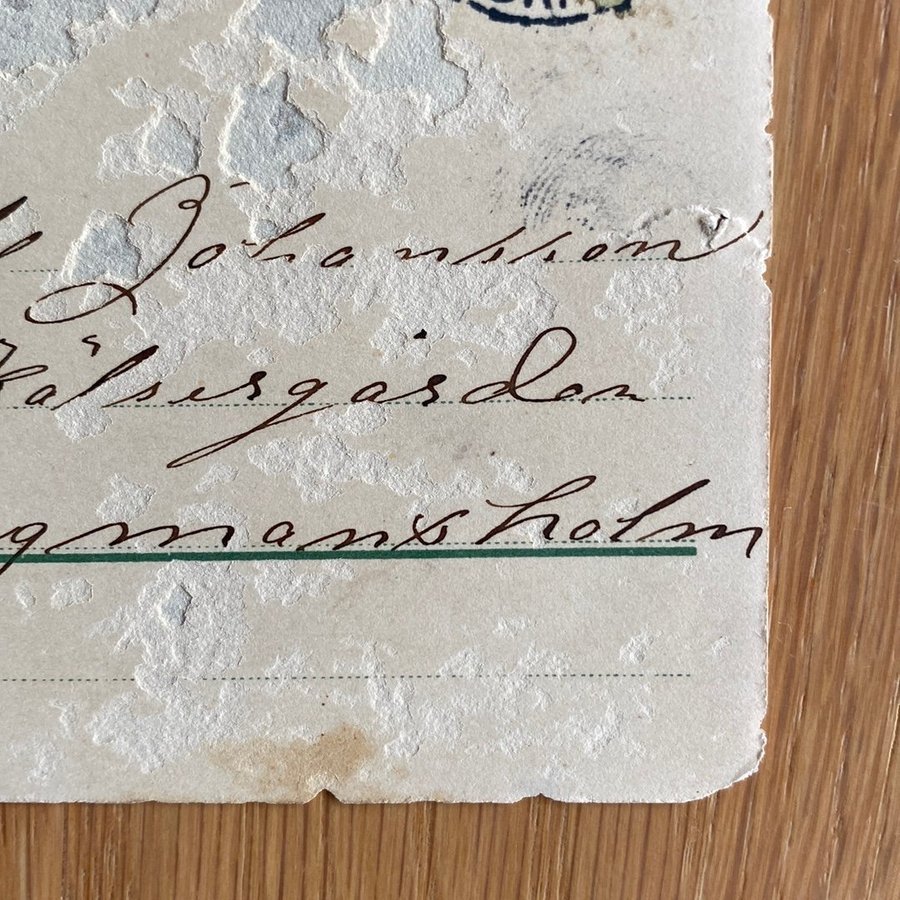 Johansson
Kälsergården
gmansholm